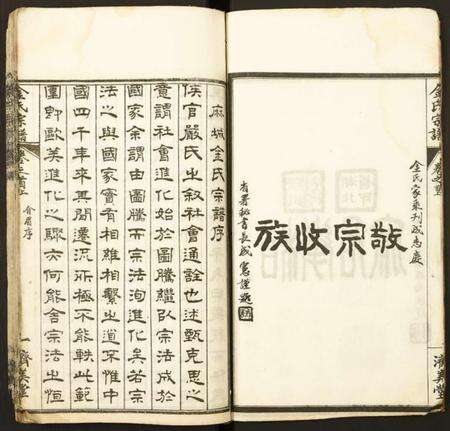 金氏宗譜
濟美堂
金氏家乘刊成志慶
敬宗收族
省署秘書長成憲謹題
麻城金氏宗譜序
侯官嚴氏之敘社會通詮也述甄克思之
意謂社會進化始於圖騰繼以宗法成於
國家余謂由圖騰而宗法洵進化矣若宗
法之與國家實有相維相繫之道不惟中
國四千年來再閱遷流所極不能軼此範
圍即歐美進化之驟亦何能舍宗法之恒
金氏宗譜
序
一
濟美堂